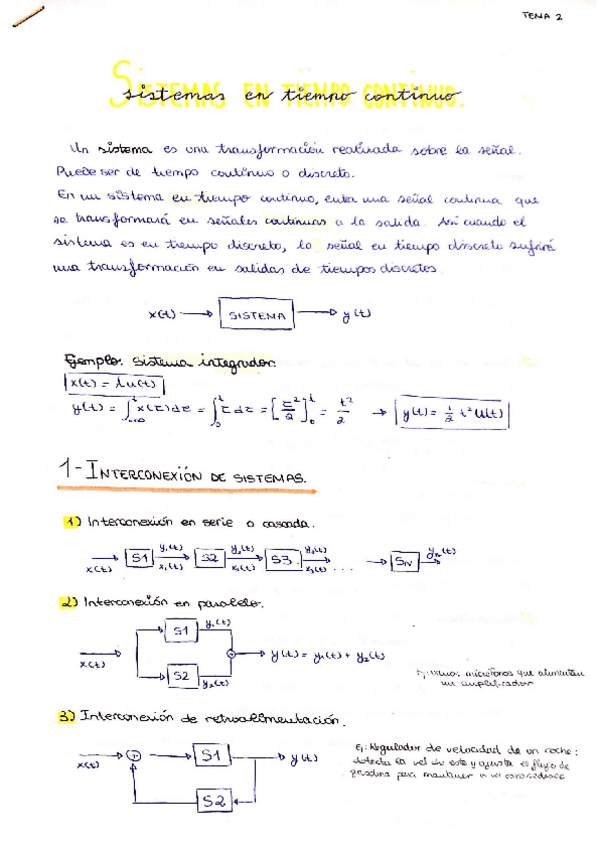 TEMA 2
SISTEMAS EN TIEMPO CONTINUO.
sistemas en tiempo continuo.
Un sistema es una transformación realizada sobre la señal.
Puede ser de tiempo continuo o discreto.
En un sistema en tiempo continuo, entra una señal continua que
se transformará en señales continuas a la salida. Así cuando el
sistema es en tiempo discreto, la señal en tiempo discreto sufrirá
una transformación en salidas de tiempos discretos.
x(t) → SISTEMA → y(t)
Ejemplo: Sistema integrador:
x(t) = t u(t)
y(t) = ∫ x(τ)dτ = ∫₀ᵗ τ dτ = [τ²/2]₀ᵗ = t²/2 → y(t) = 1/2 t² u(t)
1- INTERCONEXIÓN DE SISTEMAS.
1) Interconexión en serie o cascada.
y₁(t) y₂(t) y₃(t) yₙ(t)
S1 S2 S3 ... SN
x(t) x₁(t) x₂(t) x₃(t)
2) Interconexión en paralelo.
S1 y₁(t)
x(t) y(t) = y₁(t) + y₂(t)
S2 y₂(t)
micrófonos que alimentan
un amplificador
3) Interconexión de retroalimentación.
x(t) + S1 y(t)
S2
Ej: Regulador de velocidad de un coche:
detecta la vel de este y ajusta el flujo de
gasolina para mantener